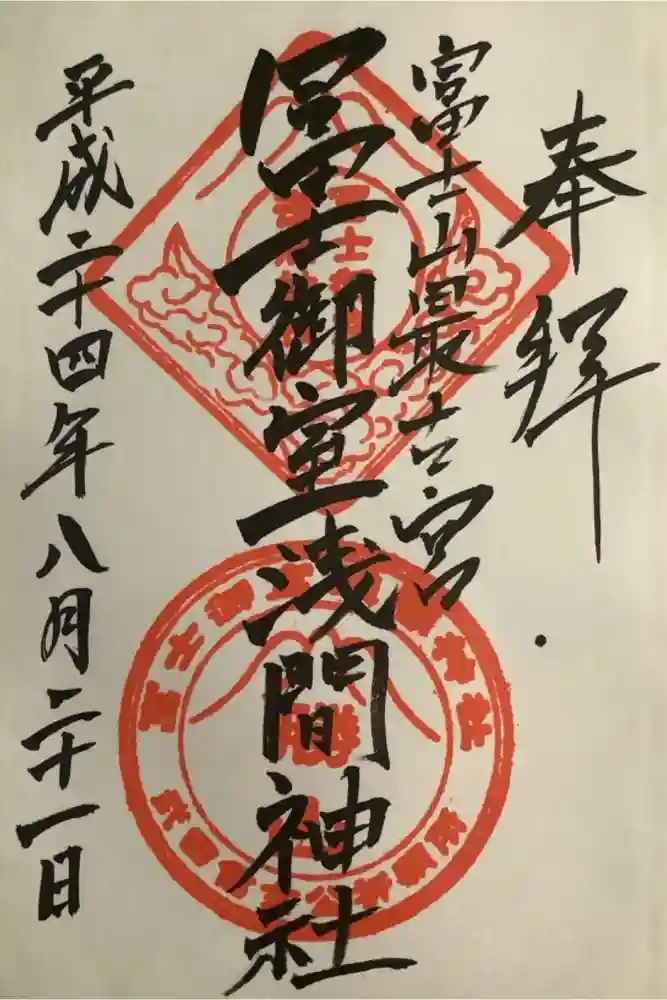 奉拝
富士山最古宮
冨士御室浅間神社
平成二十四年八月二十一日